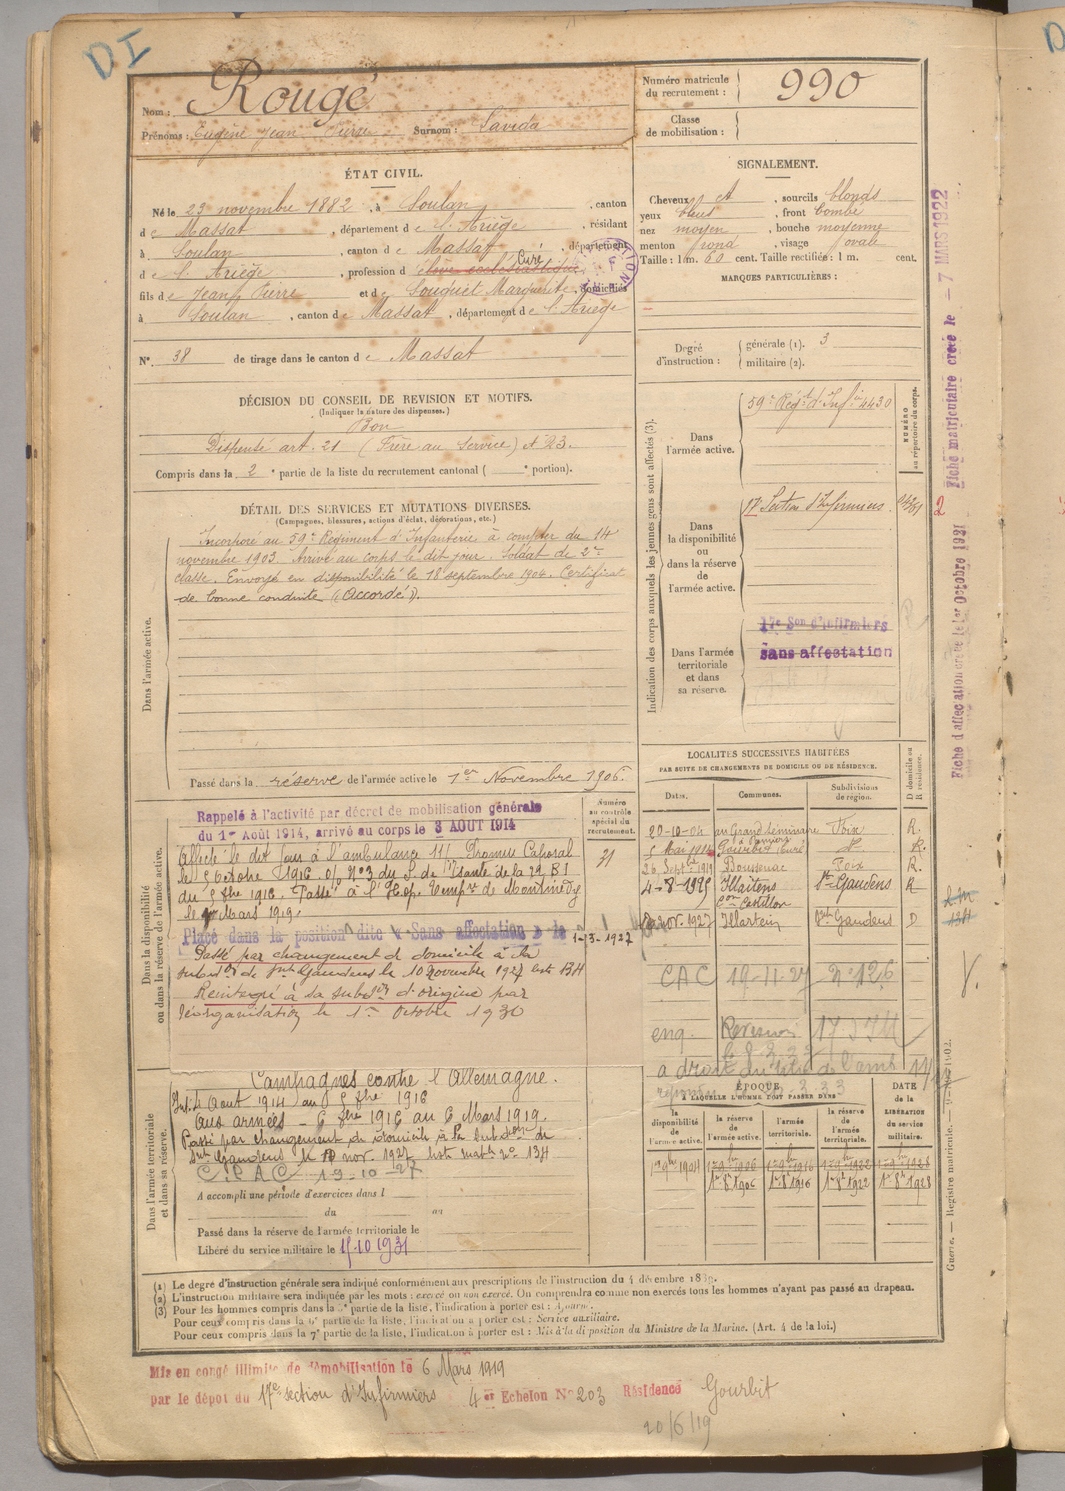 DI
Nom : Rougé
Prénoms : Eugène Jean Pierre Surnom : Savida
Numéro matricule du recrutement : 990
Classe de mobilisation :
ÉTAT CIVIL.
Né le 23 novembre 1882, à Soulan, canton
de Massat, département de l'Ariège, résidant
à Soulan, canton de Massat, département
Curé
de l'Ariège, profession d'élève ecclésiastique,
fils de Jean Pierre et de Souquet Marguerite, domiciliés
à Soulan, canton de Massat, département de l'Ariège
N° 38 de tirage dans le canton de Massat
SIGNALEMENT.
Cheveux et, sourcils blonds
yeux bleus, front bombé
nez moyen, bouche moyenne
menton rond, visage ovale
Taille : 1 m. 60 cent. Taille rectifiée : 1 m. cent.
MARQUES PARTICULIÈRES :
Degré d'instruction : générale (1). 3
militaire (2).
DÉCISION DU CONSEIL DE REVISION ET MOTIFS.
(Indiquer la nature des dispenses.)
Bon
Dispensé art. 21 (Frère au Service) et 23.
Compris dans la 2e partie de la liste du recrutement cantonal ( e portion).
DÉTAIL DES SERVICES ET MUTATIONS DIVERSES.
(Campagnes, blessures, actions d'éclat, décorations, etc.)
Dans l'armée active.
Incorporé au 59e Régiment d'Infanterie à compter du 14
novembre 1903. Arrivé au corps le dit jour. Soldat de 2me
classe. Envoyé en disponibilité le 18 septembre 1904. Certificat
de bonne conduite "Accordé".
Passé dans la réserve de l'armée active le 1er Novembre 1906.
Indication des corps auxquels les jeunes gens sont affectés (3).
NUMÉRO au répertoire du corps.
Dans l'armée active. 59e Régt d'Infie 4430
Dans la disponibilité ou dans la réserve de l'armée active. 17e Section d'Infirmiers
Dans l'armée territoriale et dans sa réserve.
17e Son d'infirmiers
sans affectation
Dans la disponibilité ou dans la réserve de l'armée active.
Numéro au contrôle spécial du recrutement.
Rappelé à l'activité par décret de mobilisation générale
du 1er Août 1914, arrivé au corps le 3 AOUT 1914
Affecté le dit jour à l'ambulance 11/ Promu Caporal
le 5 Octobre 1916
du 5 8bre 1916. Passé à l'Hop. Temp. de Montmédy
le Mars 1919.
Placé dans la position dite « Sans affectation » le 1-3-1927
Passé par changement de domicile à la
subdon de St Gaudens le 10 Novembre 1927 134
Réintégré à sa subdon d'origine par
réorganisation le 1er Octobre 1930
LOCALITÉS SUCCESSIVES HABITÉES
PAR SUITE DE CHANGEMENTS DE DOMICILE OU DE RÉSIDENCE.
Dates. Communes. Subdivisions de région. D domicile ou R résidence.
20-10-04 au Grand Séminaire Pamiers Foix R.
5 Mai 1914 Gourbit Curé R.
26 Septbre 1919 Boussenac Foix R.
4-8-1925 Illartein St Gaudens R
Con Castillon
nov. 1927 Illartein St Gaudens D
CAC 19-11-27 N° 126
Dans l'armée territoriale et dans sa réserve.
Campagnes contre l'Allemagne.
Int. 4 Aout 1914 au 5 8bre 1916
Aux armées – 6 8bre 1916 au 6 Mars 1919.
Passé par changement de domicile à la subdon de
St Gaudens le 10 nov. 1927 liste matle n° 134
19-10-27
A accompli une période d'exercices dans l
du au
Passé dans la réserve de l'armée territoriale le
Libéré du service militaire le 15.10 1931
ÉPOQUE À LAQUELLE L'HOMME DOIT PASSER DANS
la disponibilité de l'armée active. la réserve de l'armée active. l'armée territoriale. la réserve de l'armée territoriale. DATE de la LIBÉRATION du service militaire.
1er 9bre 1904 1er 9bre 1906 1er 9bre 1916 1er 9bre 1922 1er 9bre 1928
1er 8bre 1906 1er 8bre 1916 1er 8bre 1922 1er 8bre 1928
(1) Le degré d'instruction générale sera indiqué conformément aux prescriptions de l'instruction du 4 décembre 1889.
(2) L'instruction militaire sera indiquée par les mots : exercé ou non exercé. On comprendra comme non exercés tous les hommes n'ayant pas passé au drapeau.
(3) Pour les hommes compris dans la 5e partie de la liste, l'indication à porter est : Ajourné.
Pour ceux compris dans la 6e partie de la liste, l'indication à porter est : Service auxiliaire.
Pour ceux compris dans la 7e partie de la liste, l'indication à porter est : Mis à la disposition du Ministre de la Marine. (Art. 4 de la loi.)
Mis en congé illimité de démobilisation le 6 Mars 1919
par le dépôt du 17e section d'Infirmiers 4er Echelon N° 203 Résidence Gourbit
20/6/19
Fiche matriculaire créée le – 7 MARS 1922
Fiche d'affectation créée le 1er Octobre 1931
Guerre. — Registre matricule.